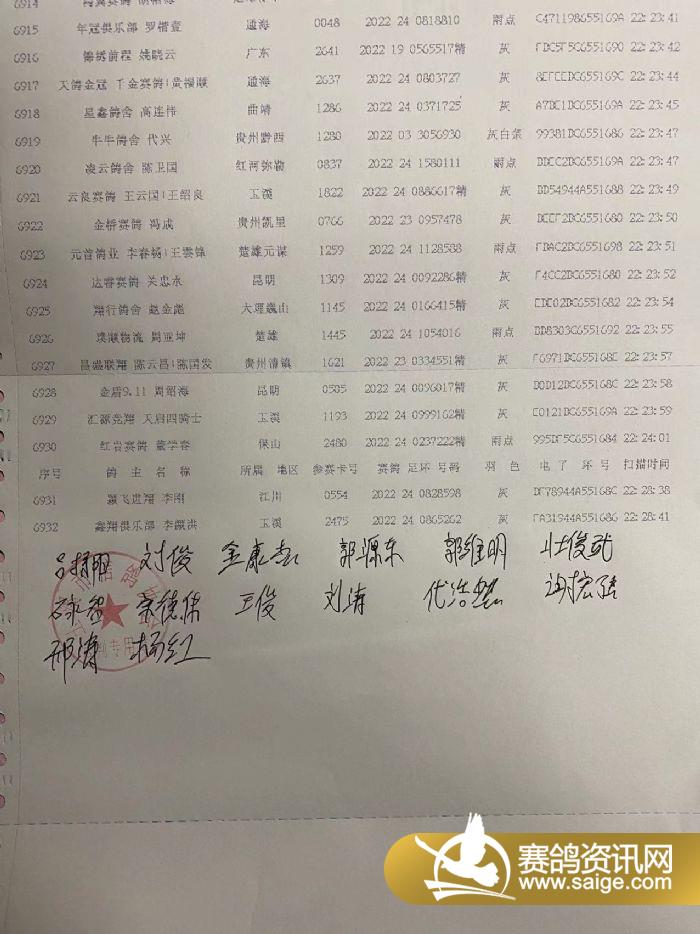 6914
6915 年冠俱乐部 罗楷壹 通海 0048 2022 24 0818810 雨点 C471198655169A 22:23:41
6916 锦绣前程 姚晓云 广东 2641 2022 19 0565517精 灰 FDC5F5C6551690 22:23:42
6917 天鸽金冠 千金赛鸽:黄福顺 通海 2637 2022 24 0803727 灰 8EFEEDC655169C 22:23:44
6918 星鑫鸽舍 高连伟 曲靖 1286 2022 24 0371725 灰 A7BE1DC655169A 22:23:45
6919 牛牛鸽舍 代兴 贵州黔西 1280 2022 03 3056930 灰白条 99381DC6551686 22:23:47
6920 凌云鸽舍 陈卫国 红河弥勒 0837 2022 24 1580111 雨点 DDEC2DC655169A 22:23:47
6921 云良赛鸽 王云国:王绍良 玉溪 1822 2022 24 0886617精 灰 DD54944A551688 22:23:49
6922 金桥赛鸽 冯成 贵州凯里 0766 2022 23 0957478 灰 DEEF2DC6551680 22:23:50
6923 元首鸽业 李春杨:王雲锋 楚雄元谋 1259 2022 24 1128588 雨点 FDAC2DC6551698 22:23:51
6924 达睿赛鸽 关忠永 昆明 1309 2022 24 0092286精 灰 F4CC2DC6551680 22:23:52
6925 翔行鸽舍 赵金彪 大理巍山 1145 2022 24 0166415精 灰 EDE02DC6551682 22:23:54
6926 璞顺物流 周亚坤 楚雄 1445 2022 24 1054016 雨点 DD8303C6551692 22:23:55
6927 昌盛联翔 陈云昌:陈国发 贵州清镇 1621 2022 23 0334551精 灰 F6971DC655168C 22:23:57
6928 金盾9.11 周绍海 昆明 0505 2022 24 0096017精 灰 D0D12DC655168C 22:23:58
6929 汇源竞翔 天启四骑士 玉溪 1193 2022 24 0999162精 灰 E0121DC655169A 22:23:59
6930 红岩赛鸽 董学春 保山 2480 2022 24 0237222精 雨点 995DF5C6551684 22:24:01
序号 鸽 主 名 称 所属 地区 参赛卡号 赛鸽 足环 号码 羽 色 电 子 环 号 扫描时间
6931 颢飞进翔 李刚 江川 0554 2022 24 0828598 灰 DF78944A55168C 22:28:38
6932 鑫翔俱乐部 李颜洪 玉溪 2475 2022 24 0865262 灰 FA31944A551686 22:28:41
刘俊 金康杰 郭源东 郭维明
宗德伟 王俊 刘涛 代浩然
邢涛 杨红
专用
赛鸽资讯网
www.saige.com